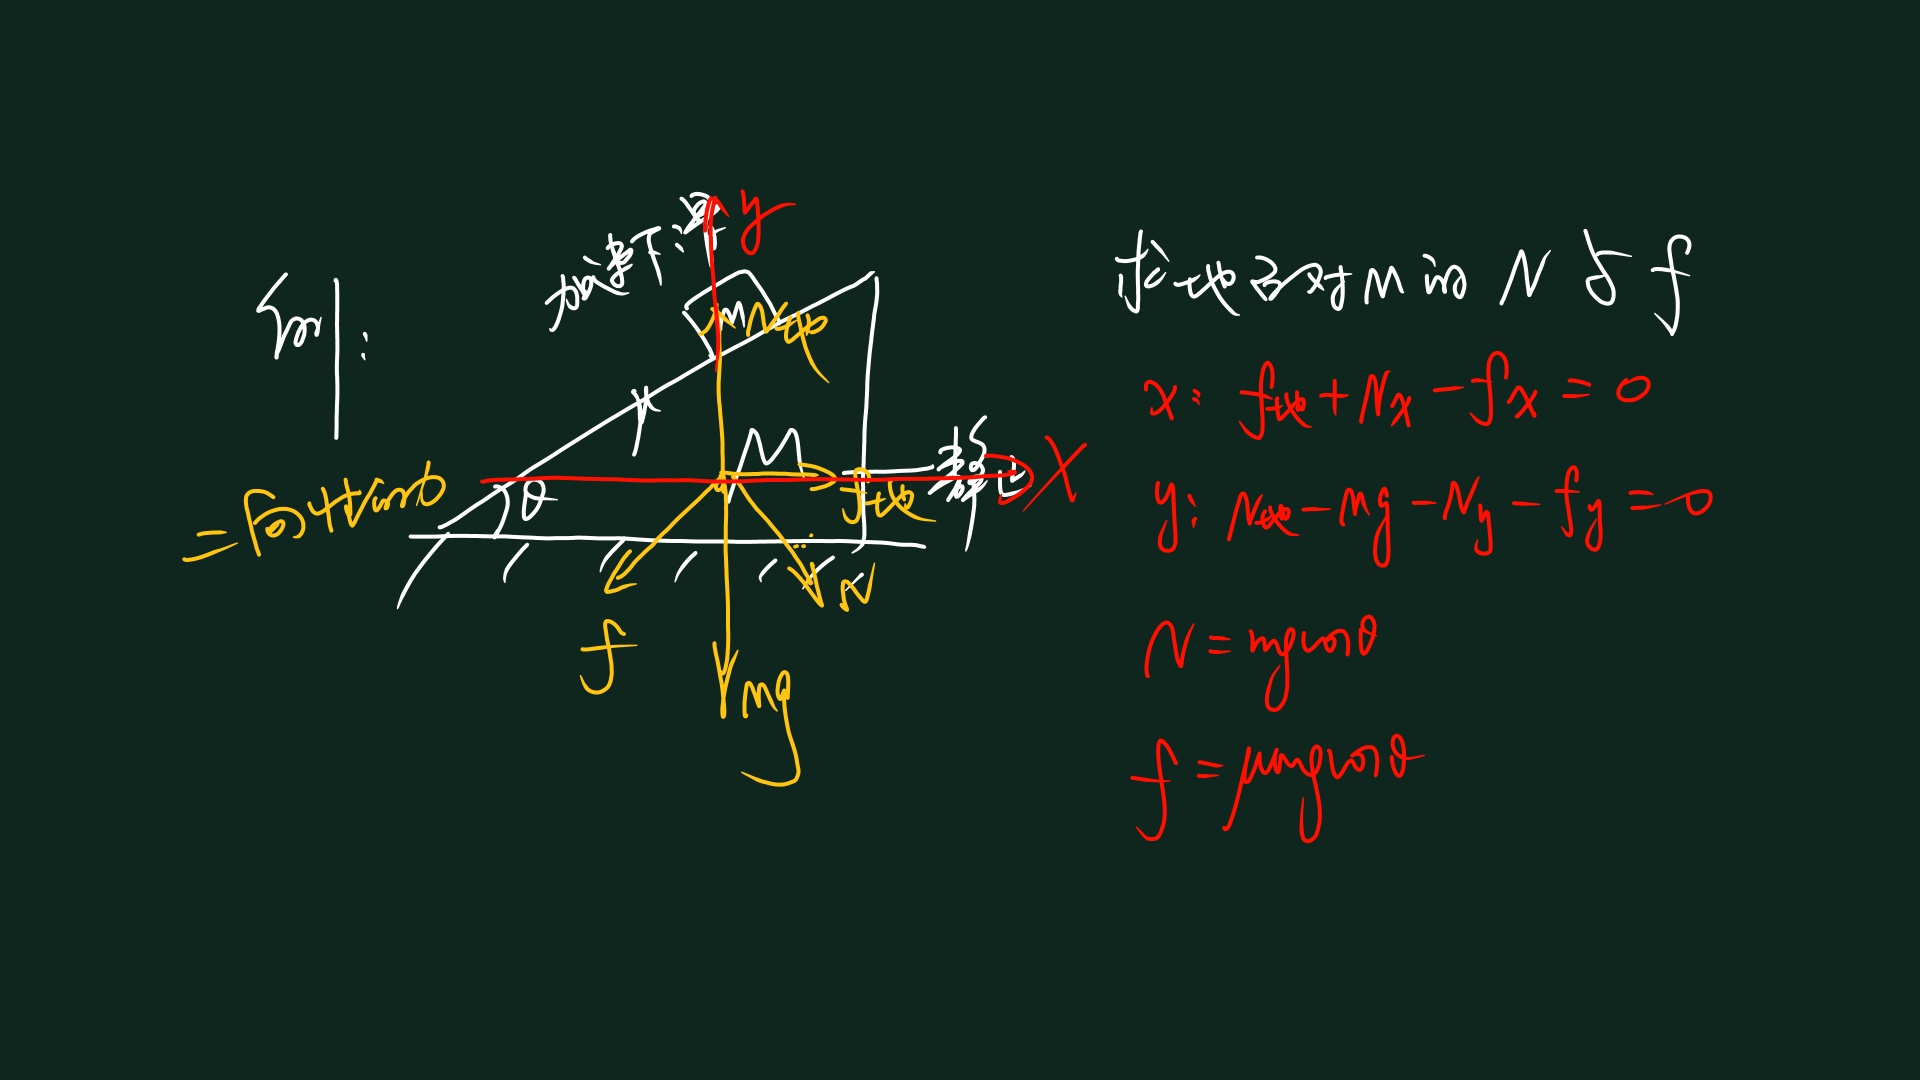 例:
加速下滑
y
m
N地
μ
M
θ
f地
静止
X
f
N
mg
求地面对M的N与f
x: f地+Nx-fx=0
y: N地-Mg-Ny-fy=0
N=mgcosθ
f=μmgcosθ